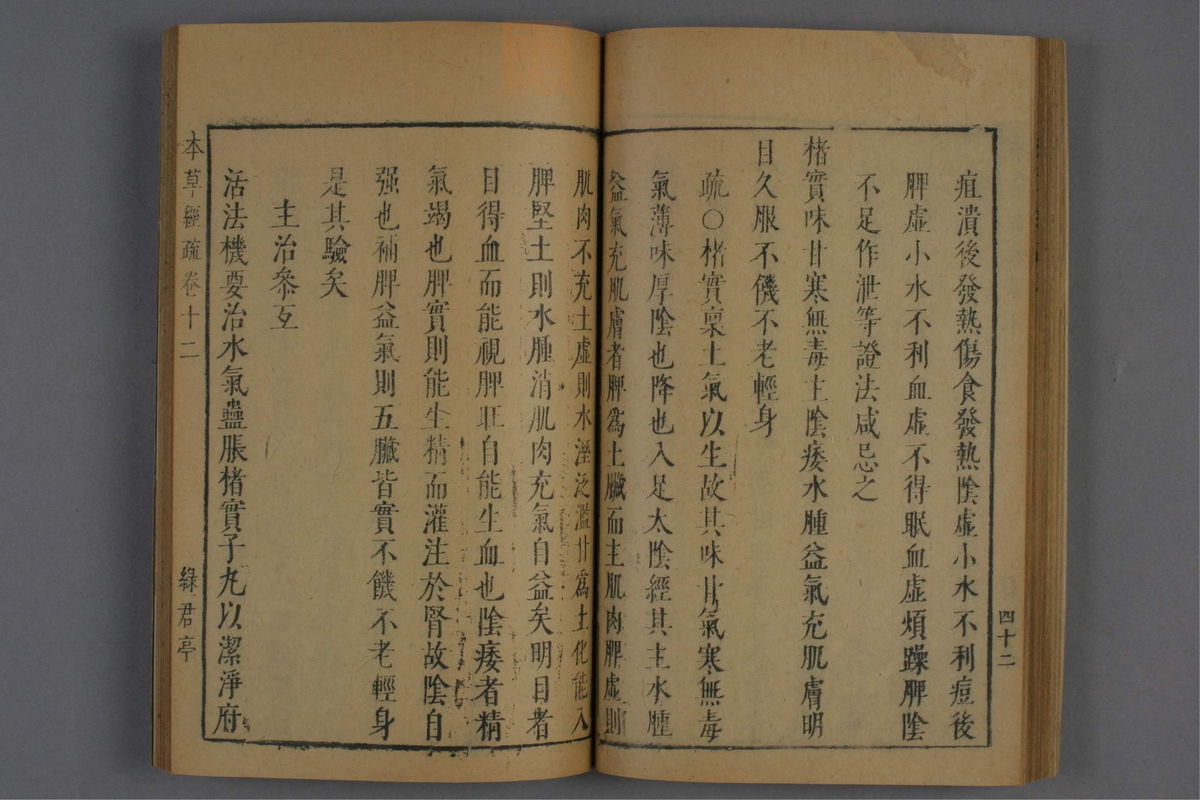 疽潰後發熱傷食發熱陰虛小水不利痘後
脾虛小水不利血虛不得眠血虛煩躁脾陰
不足作泄等證法咸忌之
楮實味甘寒無毒主陰痿水腫益氣充肌膚明
目久服不饑不老輕身
疏○楮實稟土氣以生故其味甘氣寒無毒
氣薄味厚陰也降也入足太陰經其主水腫
益氣充肌膚者脾爲土臟而主肌肉脾虛則
四十二
肌肉不充土虛則水溼泛濫甘爲土化能入
脾堅土則水腫消肌肉充氣自益矣明目者
目得血而能視脾旺自能生血也陰痿者精
氣竭也脾實則能生精而灌注於腎故陰自
强也補脾益氣則五臟皆實不饑不老輕身
是其驗矣
主治參互
活法機要治水氣蠱脹楮實子丸以潔淨府
本草經疏卷十二
綠君亭